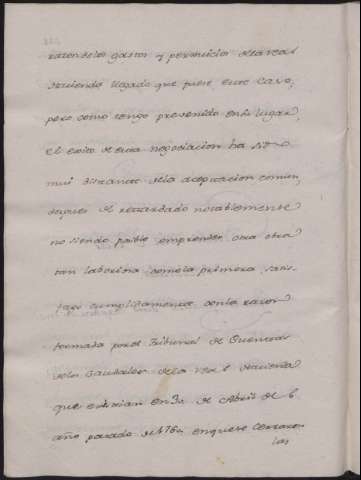 razon de los gastos y perjuicios
haviendo llegado que fuese este Caso,
pero como tengo prevenido en su lugar,
el exito de esta negociacion ha sido
mui distante de la aceptacion comun,
despues de retardado notablemente
no siendo posible emprender otra obra
tan laboriosa como la primera, satis-
fago cumplidamente con la razon
formada por el Tribunal de Quentas
de los Caudales de la Real Hacienda
que existian en 30 de Abril de l
año pasado de 1760 en que se cerraron
las